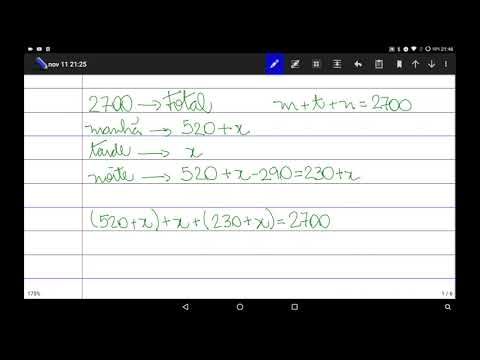 nov 11 21:25
21:46
2700 → Total m+t+n=2700
manhã → 520+x
tarde → x
noite → 520+x-290=230+x
(520+x)+x+(230+x)=2700
178%
1 / 6